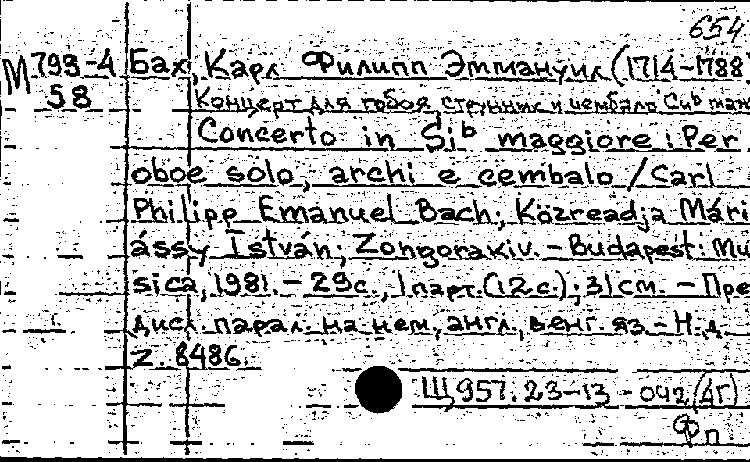 654
М 793-4 Бах, Карл Филипп Эммануил (1714-1788)
58 Концерт для гобоя, струнных и чембало Сиb маж
Concerto in Sib maggiore : Per
oboe solo, archi e cembalo / Carl
Philipp Emanuel Bach; Közreadja Mári
ássy István; Zongorakiv. – Budapest: Mu
sica, 1981. – 29с., 1 парт. (12с.); 31 см. – Пре
дисл. парал. на нем., англ., венг. яз. – Н.д.
Z. 8486.
Щ957.23-13-042(4Г)
Фп